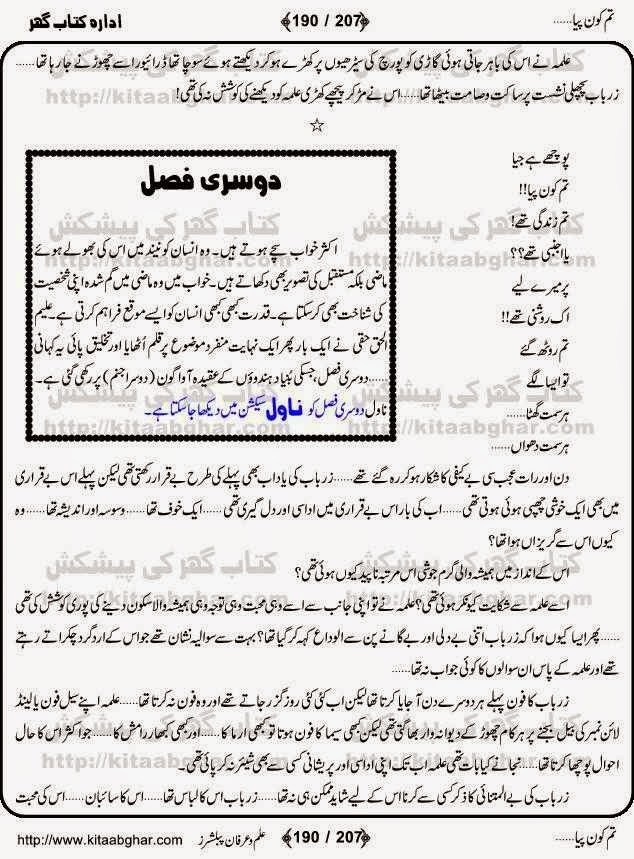 تم کون پیا......
﴾190 / 207﴿
ادارہ کتاب گھر
علمہ نے اس کی باہر جاتی ہوئی گاڑی کو پورچ کی سیڑھیوں پر کھڑے ہو کر دیکھتے ہوئے سوچا تھا ڈرائیور اسے چھوڑنے جا رہا تھا......
زرباب پچھلی نشست پر ساکت و صامت بیٹھا تھا......اس نے مڑ کر پیچھے کھڑی علمہ کو دیکھنے کی کوشش نہ کی تھی!
☆
پوچھے ہے جیا
تم کون پیا!!
تم زندگی تھے!
یا اجنبی تھے؟؟
پر میرے لیے
اک روشنی تھے!!
تم روٹھ گئے
تو ایسا لگے
ہر سمت گھٹا......
ہر سمت دھواں......
دوسری فصل
اکثر خواب سچے ہوتے ہیں۔ وہ انسان کو نیند میں اس کی بھولے ہوئے
ماضی بلکہ مستقبل کی تصویر بھی دکھاتے ہیں۔ خواب میں وہ ماضی میں گم شدہ اپنی شخصیت
کی شناخت بھی کرسکتا ہے۔ قدرت کبھی کبھی انسان کو ایسے موقع فراہم کرتی ہے۔ علیم
الحق حقی نے ایک بار پھر ایک نہایت منفرد موضوع پر قلم اُٹھایا اور تخلیق پائی یہ کہانی
......دوسری فصل، جسکی بُنیاد ہندوؤں کے عقیدہ آواگون (دوسرا جنم) پر رکھی گئی ہے۔
ناول دوسری فصل کو ناول سیکشن میں دیکھا جاسکتا ہے۔
دن اور رات عجب سی بے کیفی کا شکار ہو کر رہ گئے تھے......زرباب کی یاد اب بھی پہلے کی طرح بے قرار رکھتی تھی لیکن پہلے اس بے قراری
میں بھی ایک خوشی چھپی ہوئی ہوتی تھی......اب کی بار اس بے قراری میں اداسی اور دل گیری تھی......ایک خوف تھا......وسوسہ اور اندیشہ تھا......وہ
کیوں اس سے گریزاں ہوا تھا؟
اس کے انداز میں ہمیشہ والی گرم جوشی اس مرتبہ ناپید کیوں ہوئی تھی؟
اسے علمہ سے شکایت کیونکر ہوئی تھی؟ علمہ نے تو اپنی جانب سے اسے وہی محبت وہی توجہ وہی ہمیشہ والا سکون دینے کی پوری کوشش کی تھی
......پھر ایسا کیوں ہوا کہ زرباب اتنی بے دلی اور بے گانے پن سے الوداع کہہ کر گیا تھا؟ بہت سے سوالیہ نشان تھے جو اس کے ارد گرد چکراتے رہتے
تھے اور علمہ کے پاس ان سوالوں کا کوئی جواب نہ تھا......
زرباب کا فون پہلے ہر دوسرے دن آ جایا کرتا تھا لیکن اب کئی کئی روز گزر جاتے تھے اور وہ فون نہ کرتا تھا......علمہ اپنے سیل فون یا لینڈ
لائن نمبر کی بیل بجنے پر ہر کام چھوڑ کے دیوانہ وار بھاگتی تھی لیکن کبھی سیما کا فون ہوتا تو کبھی ارما کا......اور کبھی کبھار رامش کا......جو اکثر اس کا حال
احوال پوچھا کرتا تھا......نجانے کیا بات تھی علمہ اب تک اپنی اداسی اور پریشانی کسی سے بھی شیئر نہ کر پائی تھی۔
زرباب کی بے التفاتی کا ذکر کسی سے کرنا اس کے لیے شاید ممکن ہی نہ تھا......زرباب اس کا لباس تھا......اس کا سائبان......اس کی محبت
تم کون پیا......
﴾190 / 207﴿
علم و عرفان پبلشرز
http://www.kitaabghar.com
کتاب گھر کی پیشکش
http://kitaabghar.com